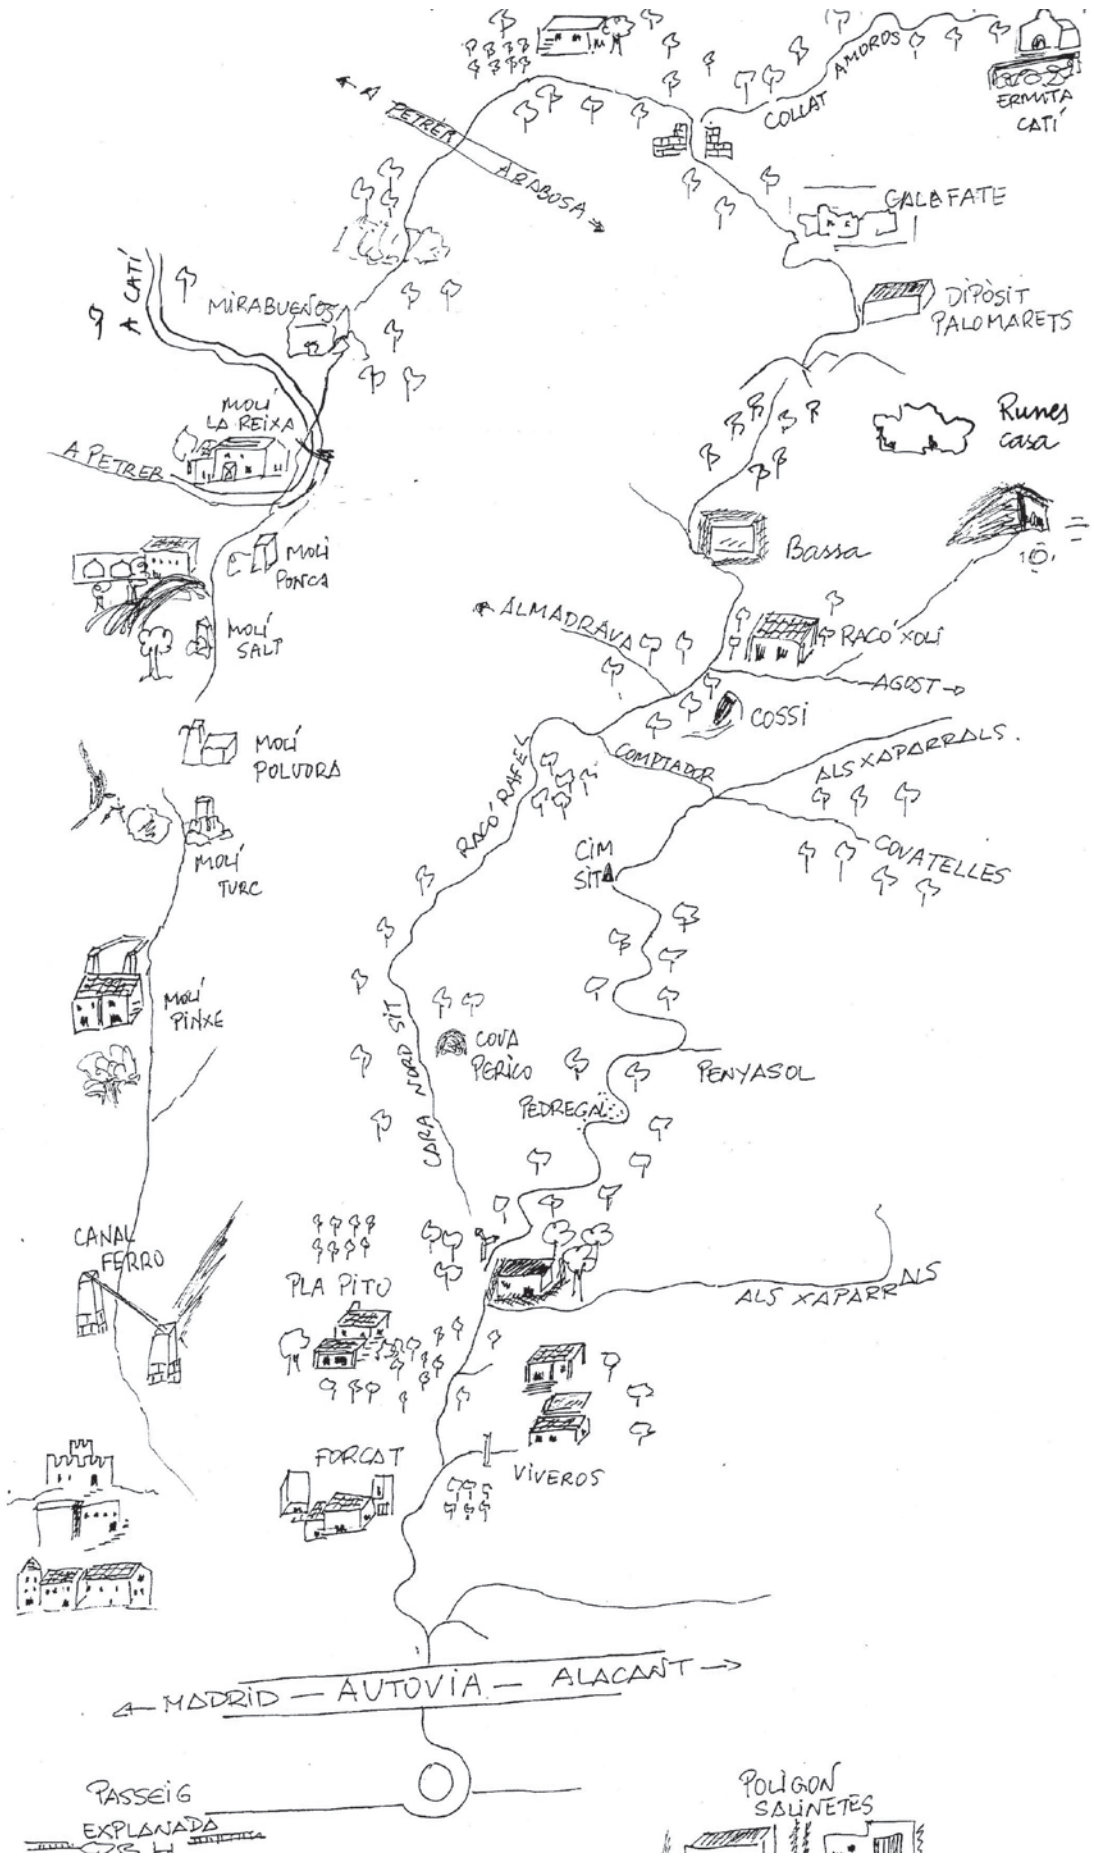 COLLAT AMOROS
ERMITA
CATÍ
A PETRER
ARABOSA
GALAFATE
DIPÒSIT
PALOMARETS
A CATÍ
MIRABUENOS
MOLÍ
LA REIXA
A PETRER
Runes
casa
MOLÍ
PONCA
Bassa
MOLÍ
SALT
ALMADRAVA
RACÓ XOLI
AGOST
COSSI
MOLÍ
POLVORA
COMPTADOR
ALS XAPARRALS.
RACÓ RAFEL
MOLÍ
TURC
CIM
SIT
COVATELLES
MOLÍ
PINXE
CARA NORD SIT
COVA
PERICO
PENYASOL
PEDREGAL
CANAL
FERRO
PLA PITU
ALS XAPARRALS
FORCAT
VIVEROS
MADRID — AUTOVIA — ALACANT
PASSEIG
EXPLANADA
POLÍGON
SALINETES